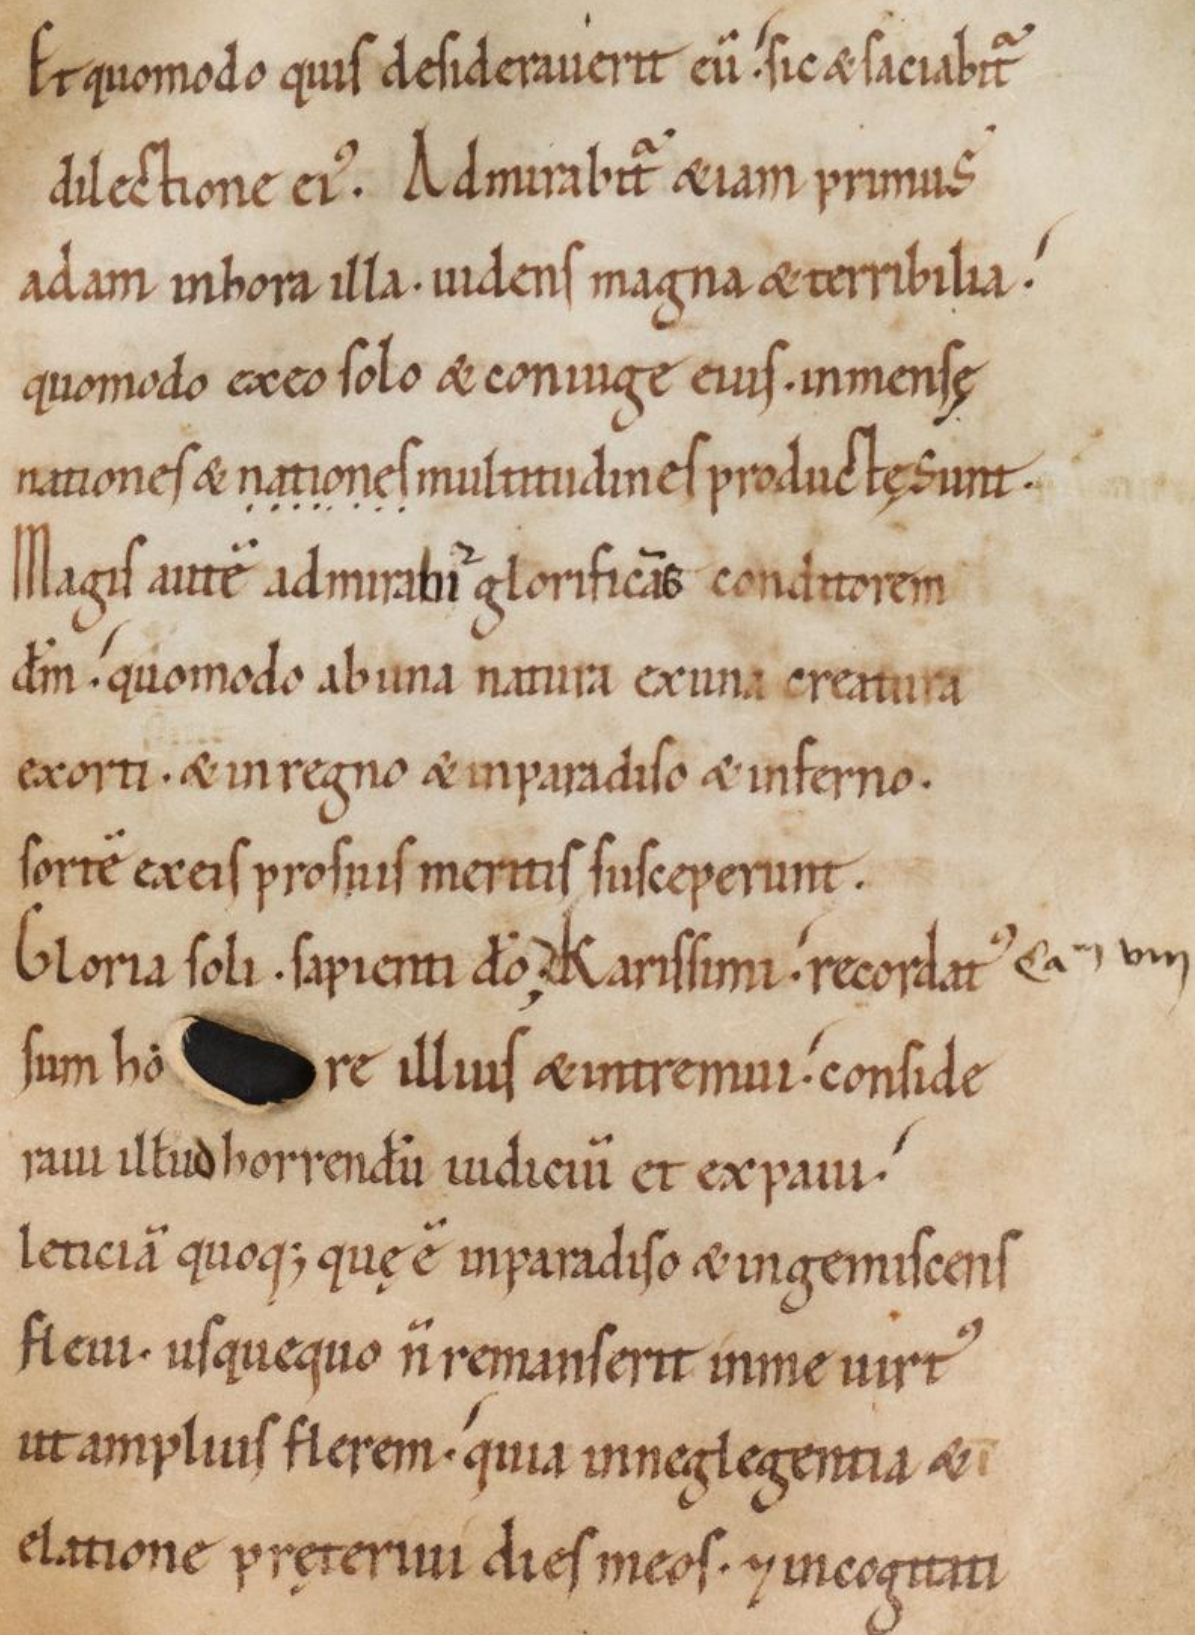 Et quomodo quis desiderauerit eū· sic & saciabit᷑
dilectione eiꝰ. Admirabit᷑ &iam primus
adam inhora illa. uidens magna & terribilia·
quomodo exeo solo & coniuge eius. inmensę
nationes & nationes multitudines productę sunt.
Magis autē admirabi᷑ glorificās conditorem
dm̄· quomodo ab una natura ex una creatura
exorti. & in regno & inparadiso & inferno.
sortē exeis prosuis meritis susceperunt.
Gloria soli. sapienti dō; Karissimi· recordatꝰ Cam viiij
sum ho re illius & intremui· conside
raui illud horrendū iudiciū et expaui·
leticiā quoq; quę ē inparadiso & ingemiscens
fleui. usquequo n̄ remanserit inme uirtꝰ
ut amplius flerem· quia inneglegentia & ī
elatione pręteriui dies meos. ⁊ incogitati